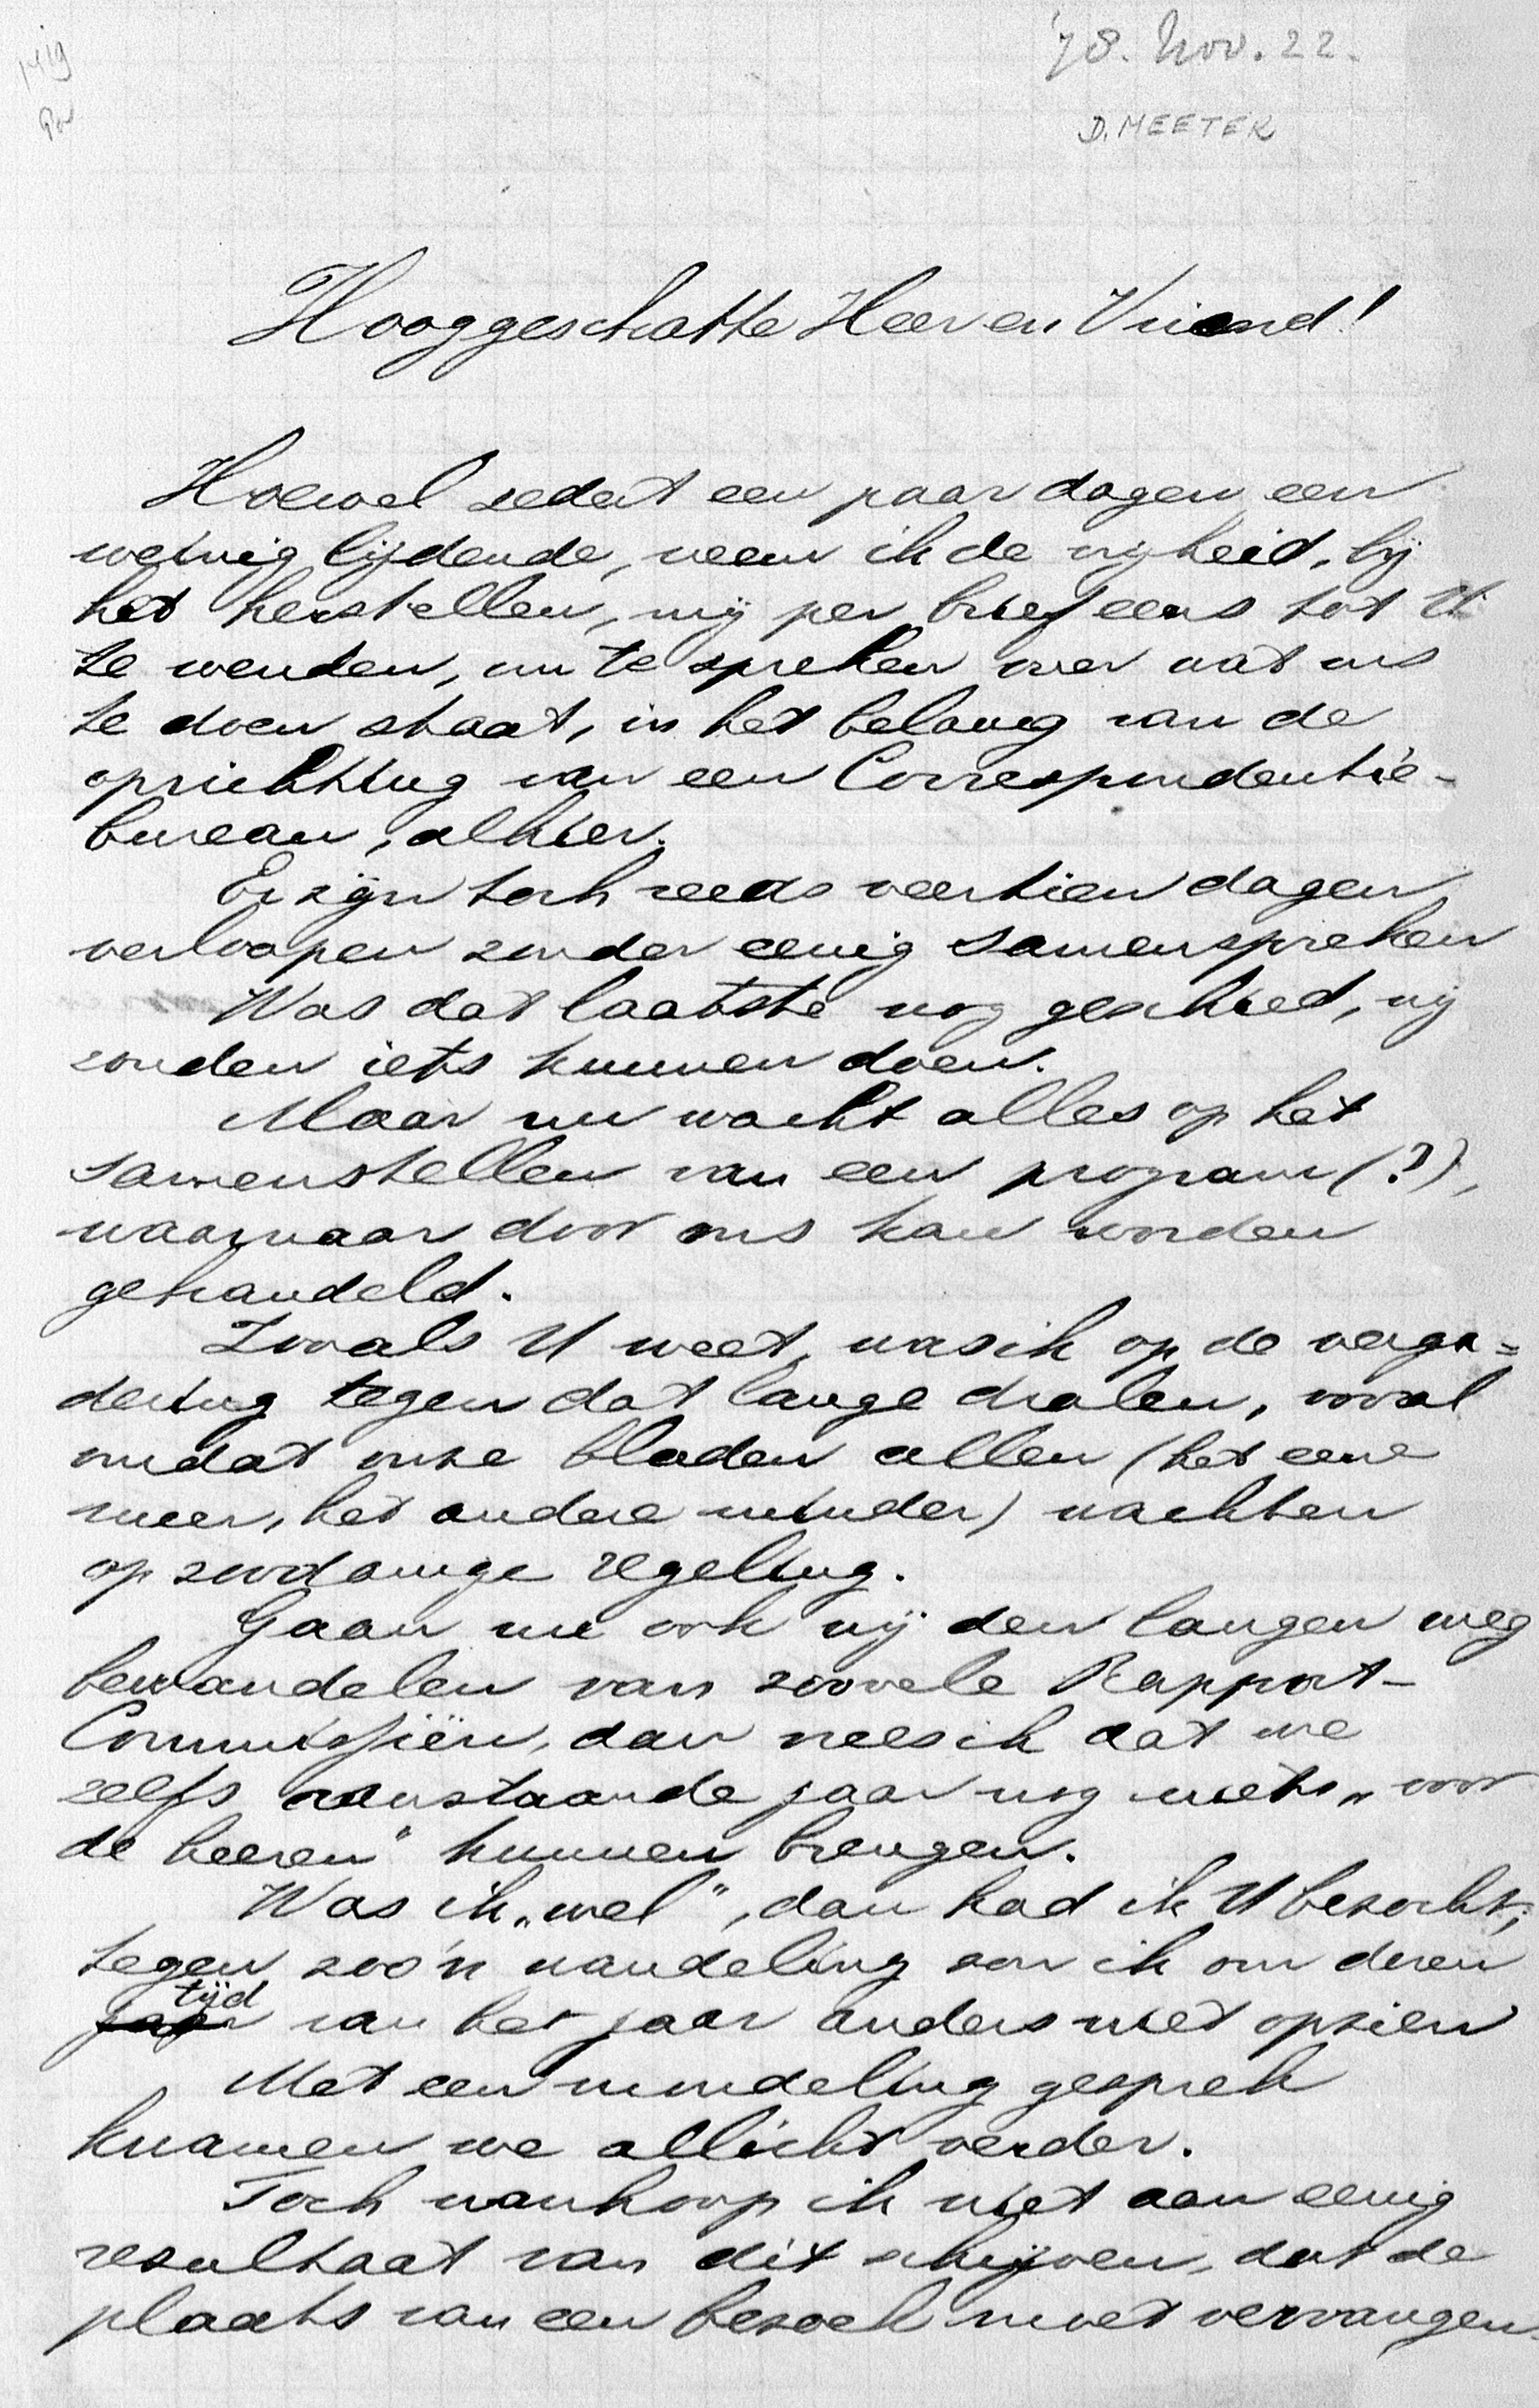 '78. Nov. 22.
D. MEETER
Hooggeschatte Heer en Vriend!
Hoewel sedert een paar dagen een
weinig lijdende, neem ik de vrijheid, bij
het herstellen, mij per brief eens tot U
te wenden, om te spreken over wat ons
te doen staat, in het belang van de
oprichting van een Correspondentie-
bureau, alhier.
Er zijn toch reeds veertien dagen
verloopen zonder eenig samenspreken
Was dat laatste nog geschied, wij
zouden iets kunnen doen.
Maar nu wacht alles op het
samenstellen van een program (?),
waarnaar door ons kan worden
gehandeld.
Zooals U weet, was ik op de verga=
dering tegen dat lange dralen, vooral
omdat onze bladen allen (het eene
meer, het andere minder) wachten
op zoodanige regeling.
Gaan nu ook wij den langen weg
bewandelen van zoovele Rapport-
Commissiën, dan vrees ik dat we
zelfs aanstaande jaar nog niets „voor
de heeren" kunnen brengen.
Was ik „wel", dan had ik U bezocht;
tegen zoo'n wandeling zou ik om dezen
tijd
jaar van het jaar anders niet opzien
Met een mondeling gesprek
kwamen we allicht verder.
Toch wanhoop ik niet aan eenig
resultaat van dit schrijven, dat de
plaats van een bezoek moet vervangen.